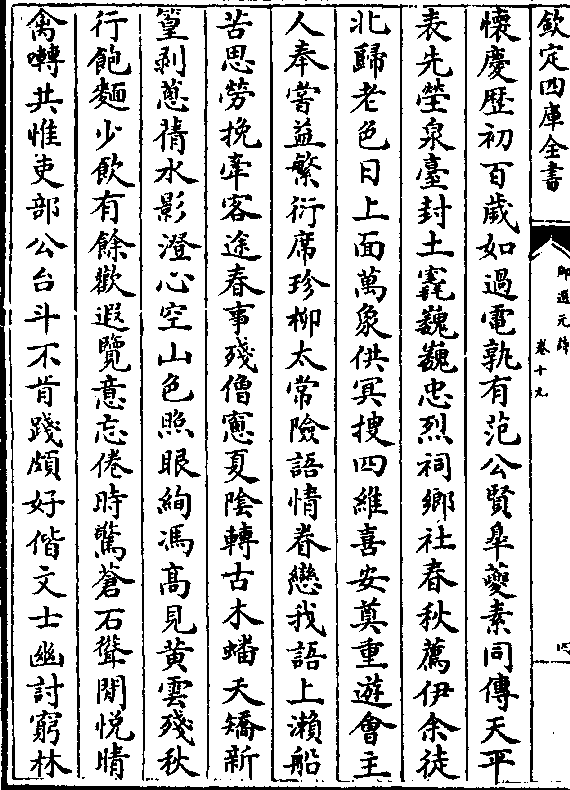 欽定四庫全書
御選元詩 卷十九 四
懷慶歴初百歲如過電孰有范公賢臯夔素同傳天平
表先塋泉臺封土窆巍巍忠烈祠鄉社春秋薦伊余徒
北歸老色日上面萬象供冥搜四維喜安奠重遊會主
人奉嘗益繁衍席珍柳太常險語情眷戀我語上瀨船
苦思勞挽牽客途春事殘僧窻夏陰轉古木蟠天矯新
篁剥蔥蒨水影澄心空山色照眼絢馮高見黄雲殘秋
行飽麵少飲有餘歡遐覽意忘倦時驚蒼石聳閒悦晴
禽囀共惟吏部公台斗不肯踐頗好偕文士幽討窮林